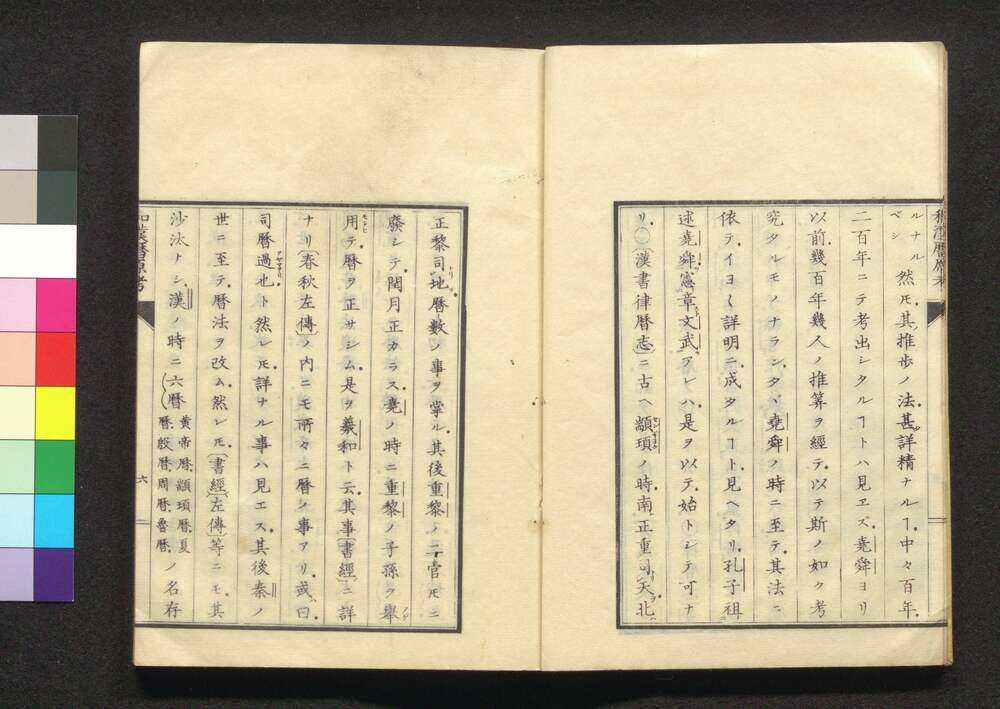 和漢暦原考
ルナルベシ 然𪜈其推歩ノ法甚詳精ナルヿ中々百年
二百年ニテ考出シタルヿトハ見ヱズ堯舜ヨリ
以前幾百年幾人ノ推筭ヲ經テ以テ斯ノ如ク考
究タルモノナランタヾ堯舜ノ時ニ至テ其法ニ
依テイヨ〱詳明ニ成タルヿト見ヘタリ孔子祖
述堯舜憲章文武アレハ是ヲ以テ始トシテ可ナ
リ〇漢書律暦志ニ古ヘ顓頊ノ時南正重司天北
正黎司地暦數ノ事ヲ掌ル其後重黎ノ二官𪜈ニ
廢シテ閏月正カラス堯ノ時ニ重黎ノ子孫ヲ舉
用テ暦ヲ正サシム是ヲ羲和ト云其事書經ニ詳
ナリ春秋左傳ノ内ニモ所々ニ暦ノ事アリ或曰
司暦過也ト然レ𪜈詳ナル事ハ見エス其後秦ノ
世ニ至テ暦法ヲ改ム然レ𪜈書經左傳等ニモ其
沙汰ナシ漢ノ時ニ六暦 黄帝暦顓頊暦夏暦殷暦周暦魯暦 ノ名存
和漢暦原考
六